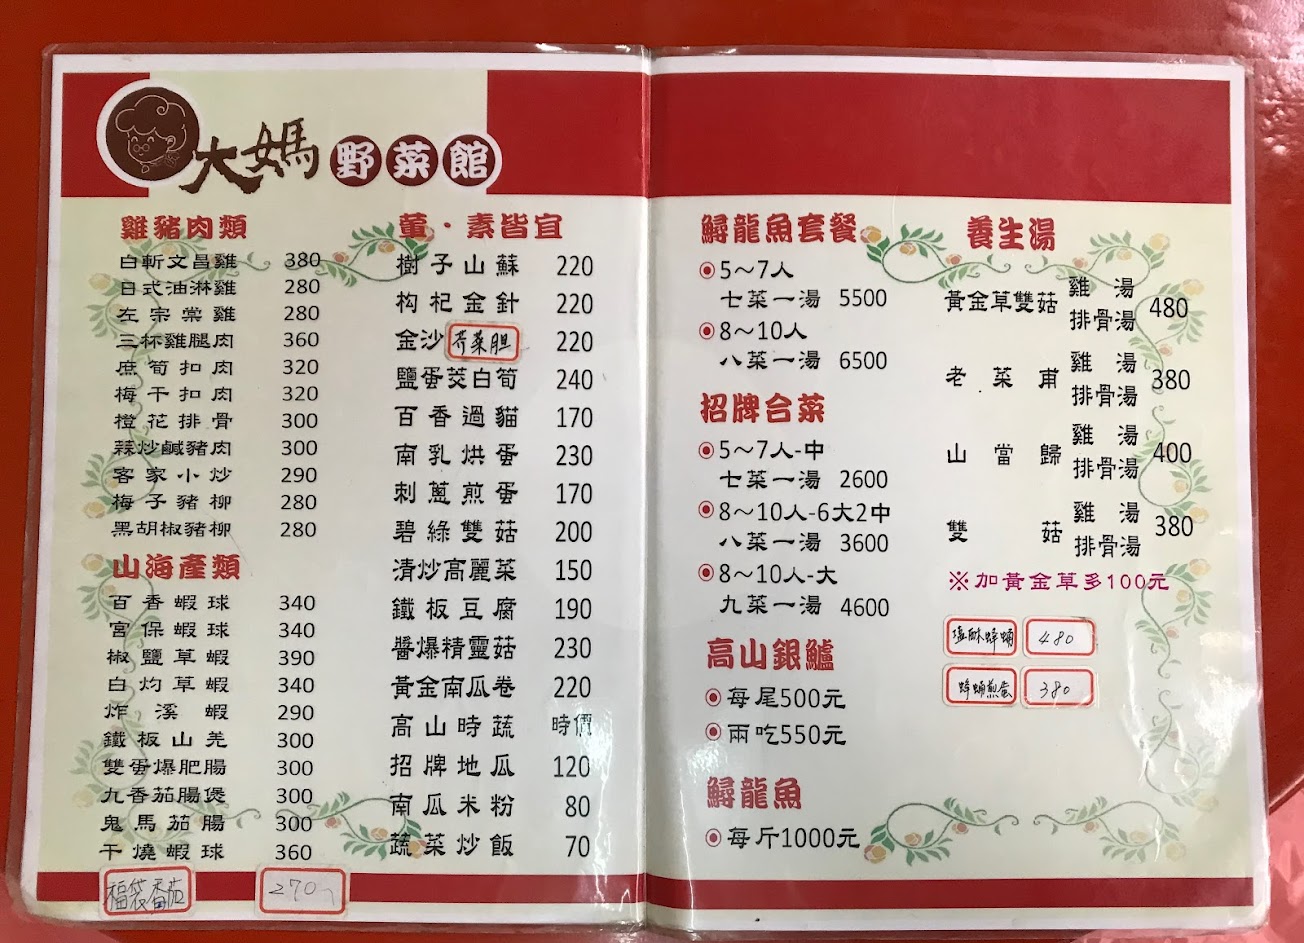 大媽野菜館
雞豬肉類
白斬文昌雞 380
日式油淋雞 280
左宗棠雞 280
三杯雞腿肉 360
庶筍扣肉 320
梅干扣肉 320
橙花排骨 300
蒜炒鹹豬肉 300
客家小炒 290
梅子豬柳 280
黑胡椒豬柳 280
山海產類
百香蝦球 340
宮保蝦球 340
椒鹽草蝦 390
白灼草蝦 340
炸溪蝦 290
鐵板山羌 300
雙蛋爆肥腸 300
九香茄腸煲 300
鬼馬茄腸 300
干燒蝦球 360
福袋番茄 270
葷·素皆宜
樹子山蘇 220
枸杞金針 220
金沙芥菜胆 220
鹽蛋茭白筍 240
百香過貓 170
南乳烘蛋 230
刺蔥煎蛋 170
碧綠雙菇 200
清炒高麗菜 150
鐵板豆腐 190
醬爆精靈菇 230
黃金南瓜卷 220
高山時蔬 時價
招牌地瓜 120
南瓜米粉 80
蔬菜炒飯 70
鱘龍魚套餐
5～7人
七菜一湯 5500
8～10人
八菜一湯 6500
招牌合菜
5～7人-中
七菜一湯 2600
8～10人-6大2中
八菜一湯 3600
8～10人-大
九菜一湯 4600
高山銀鱸
每尾500元
兩吃550元
鱘龍魚
每斤1000元
養生湯
黃金草雙菇 雞湯 排骨湯 480
老菜甫 雞湯 排骨湯 380
山當歸 雞湯 排骨湯 400
雙菇 雞湯 排骨湯 380
※加黃金草多100元
塩酥蜂蛹 480
蜂蛹煎蛋 380